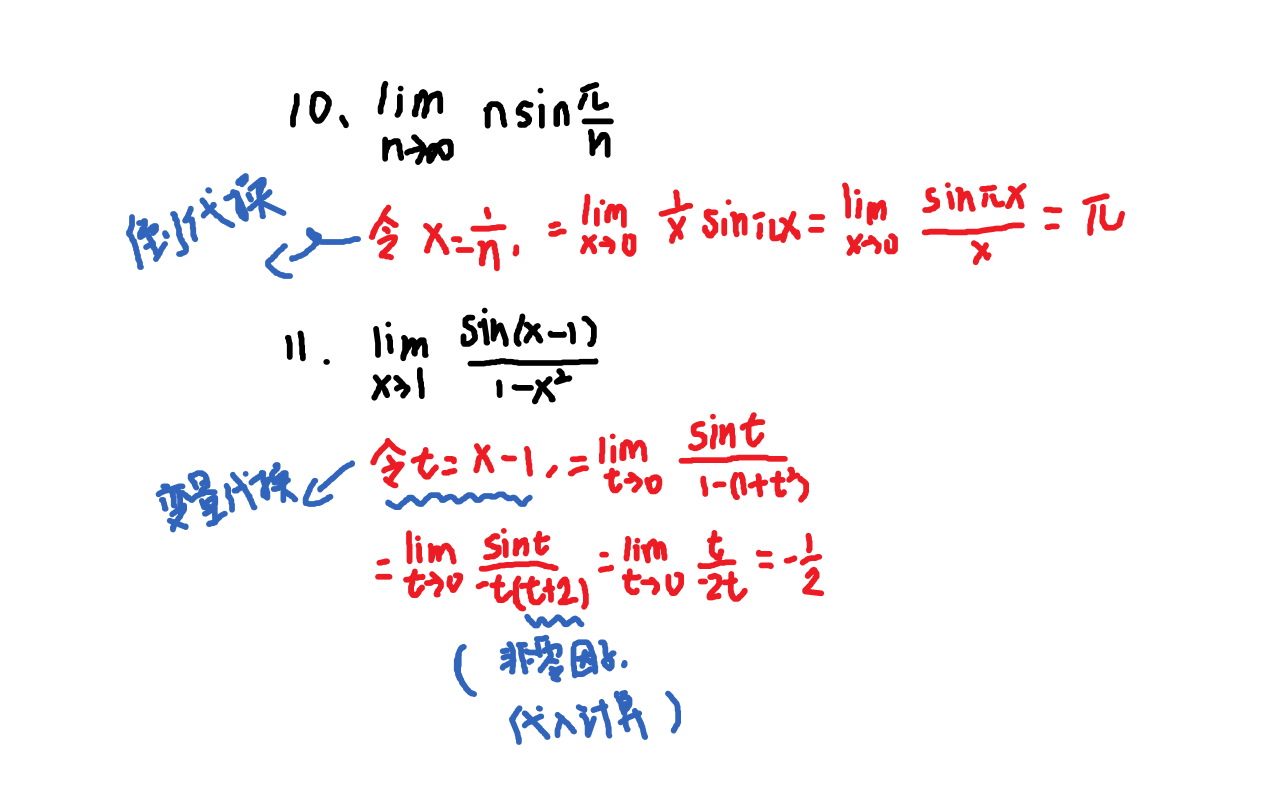 10、lim n→∞ nsin π/n
倒代换
令 x=1/n, = lim x→0 1/x sinπx = lim x→0 sinπx/x = π
11. lim x→1 sin(x-1)/1-x²
变量代换
令t=x-1, = lim t→0 sint/1-(1+t²)
= lim t→0 sint/-t(t+2) = lim t→0 t/-2t = -1/2
(非零因子.
代入计算)